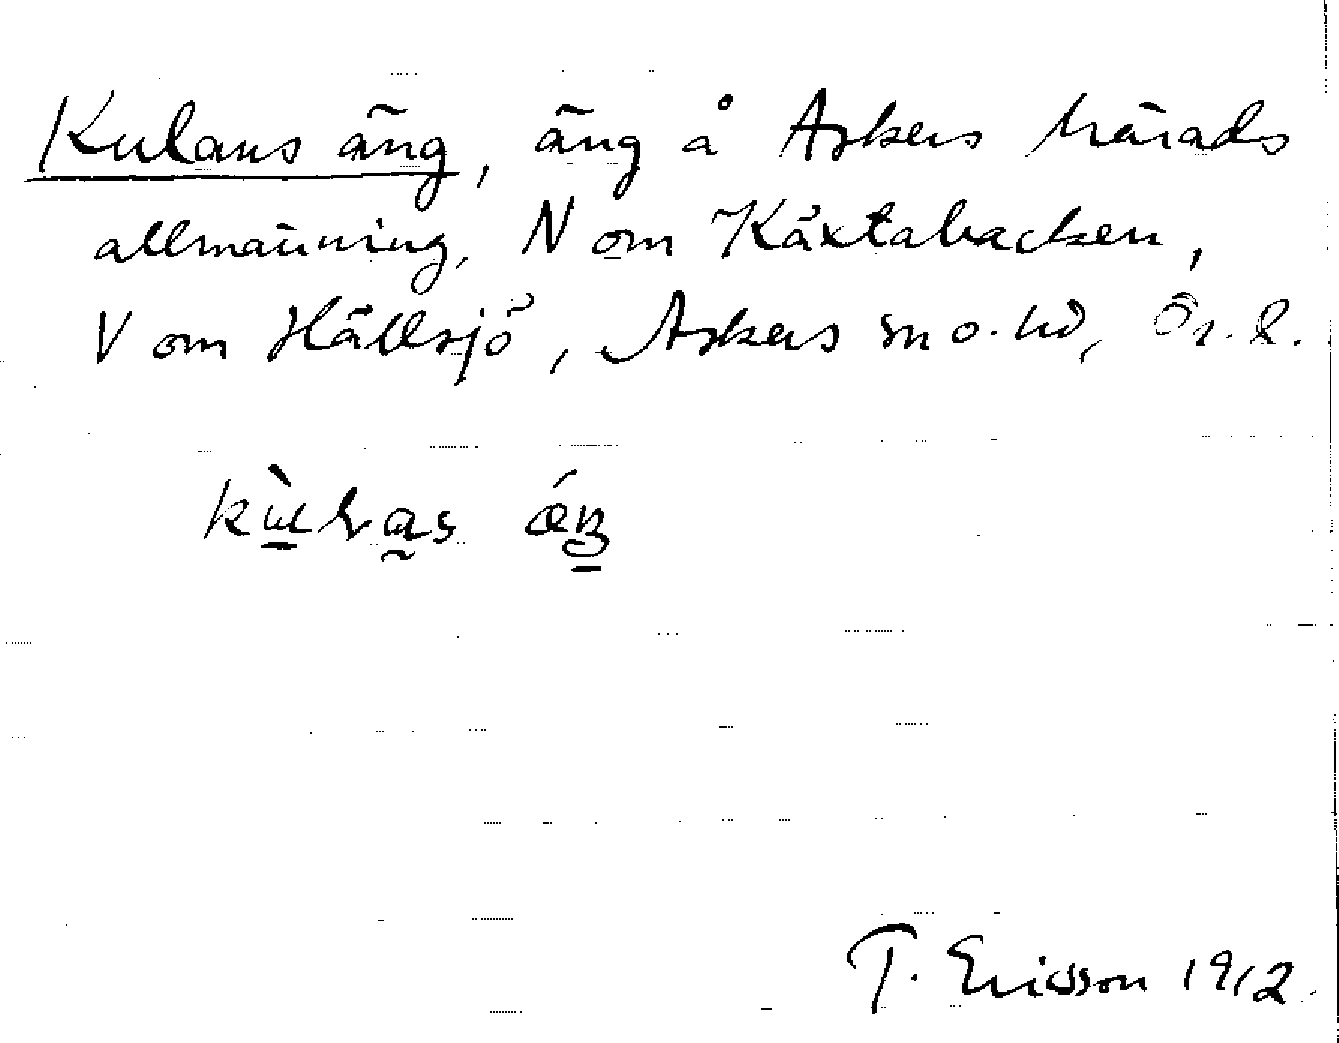 Kulans äng, äng å Askers härads
allmänning, N om Käxtabacken,
V om Hällsjö, Askers sn o. hd, Ör. l.
T. Ericsson 1912.